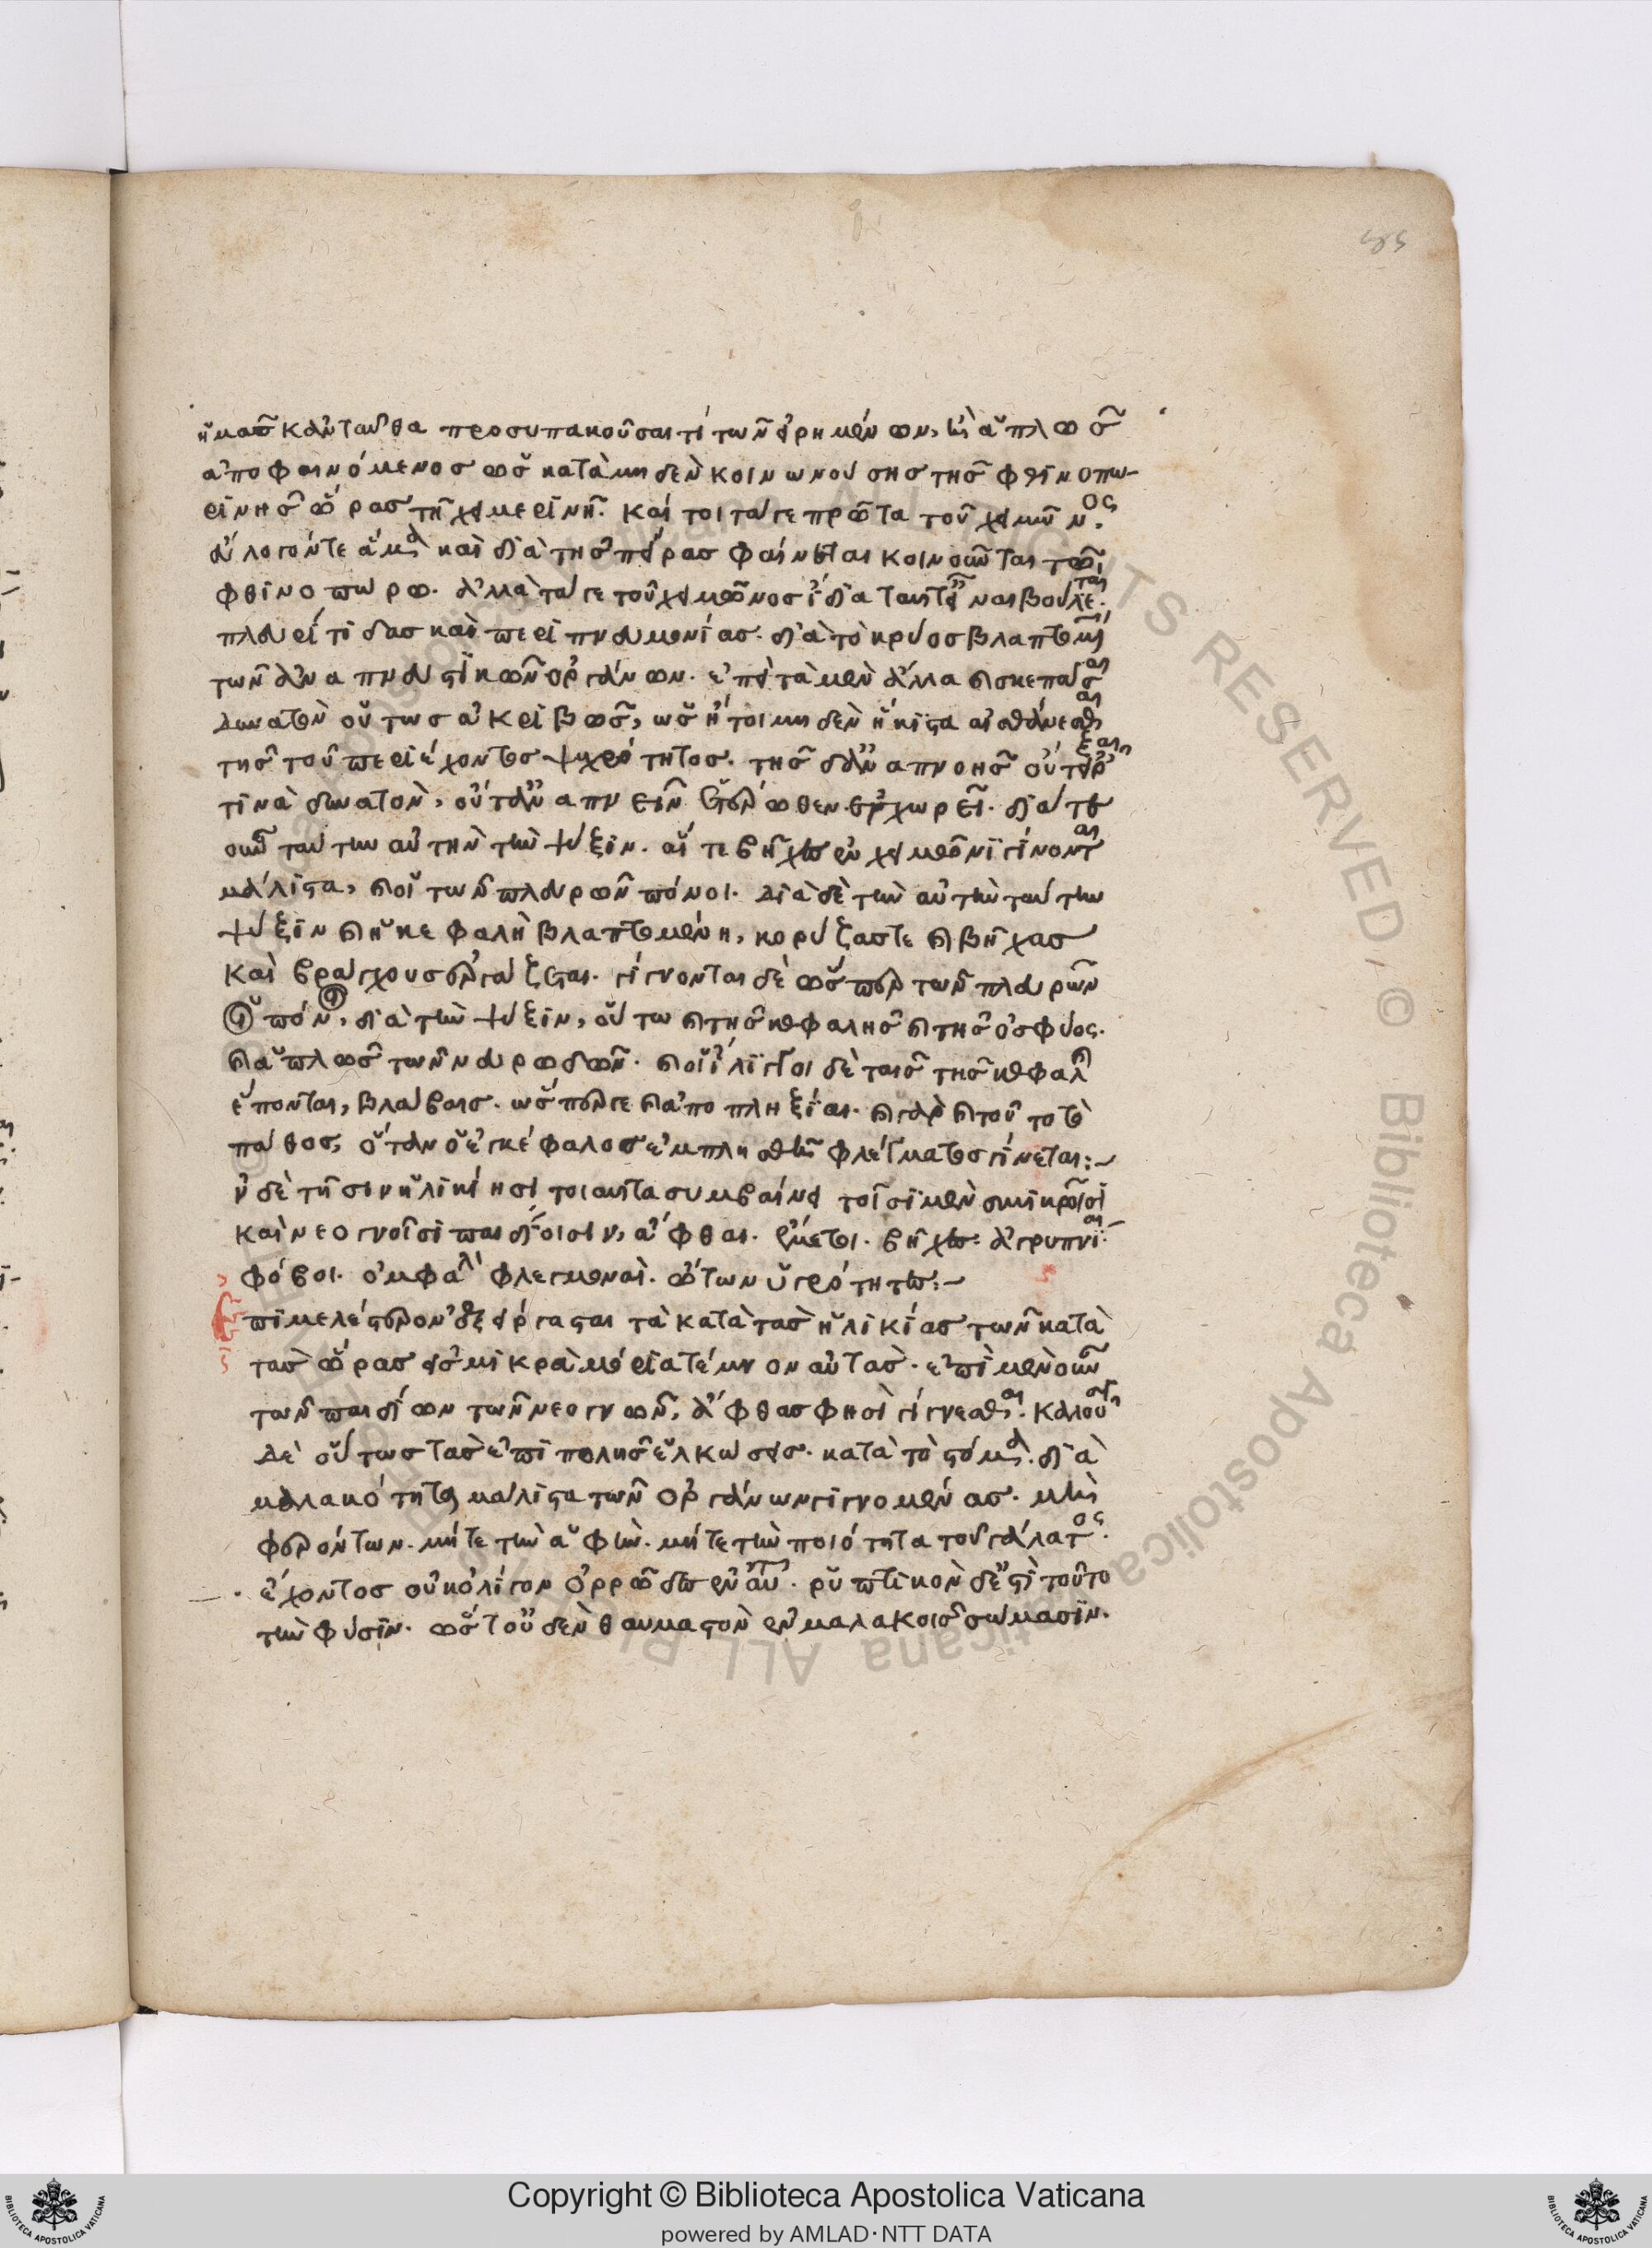 ἡμᾶς κἀνταῦθα προσυπακοῦσαι τί τῶν εἰρημένων, ἢ ἁπλῶς
ἀποφαινόμενος ὡς κατὰ μηδὲν κοινωνούσης τῆς φθινοπω-
ρινῆς ὥρας τῇ χειμερινῇ. καί τοι τά γε πρῶτα τοῦ χειμῶνος.
εὐλογόν τε ἅμα καὶ διὰ τῆς πείρας φαίνεται κοινοῦνται τῶι
φθινοπώρω. ἀλλὰ τά γε τοῦ χειμῶνος ἴδια ταῦτ' εἶναι βούλεται.
πλευρίτιδας καὶ περιπνευμονίας. διὰ τὸ κρύος βλαπτομένων
τῶν ἀναπνευστικῶν ὀργάνων. ἐπεὶ τὰ μὲν ἄλλα καὶ σκεπάσαι
δυνατὸν οὕτως ἀκριβῶς, ὡς ἤτοι μηδὲν ἥκιστα αἰσθάνεσθαι
τῆς τοῦ περιέχοντος ψυχρότητος. τῆς δ' ἀναπνοῆς οὔτ' εἶρξαι
τινὰ δυνατὸν, οὔτ' ἀναπνεῖν ἑτέρωθεν ἐγχωρεῖ. διά τε
οὖν ταύτην αὐτὴν τὴν ψύξιν. αἵ τε βῆχες ἐν χειμῶνι γίνονται
μάλιστα, καὶ οἱ τῶν πλευρῶν πόνοι. διὰ δὲ τὴν αὐτὴν ταύτην
ψύξιν καὶ ἡ κεφαλὴ βλαπτομένη, κορύζας τε καὶ βῆχας
καὶ βράγχους ἐργάζεται. γίγνονται δὲ ὥσπερ τῶν πλευρῶν
οἱ πόνοι, διὰ τὴν ψύξιν, οὕτω καὶ τῆς κεφαλῆς καὶ τῆς ὀσφύος.
καὶ ἁπλῶς τῶν νευρωδῶν. καὶ οἱ ἴλιγγοι δὲ ταῖς τῆς κεφαλῆς
ἕπονται, βλάβαις. ὥσπερ γε καὶ ἀποπληξίαι. καὶ γὰρ καὶ τοῦτο τὸ
πάθος, ὅταν ὁ ἐγκέφαλος ἐμπλησθῆ φλέγματος γίνεται:~
ν δὲ τῆσιν ἡλικίησι τοιαῦτα συμβαίνει τοῖσι μὲν σμικροῖσι
καὶ νεογνοῖσι παιδίοισιν, ἄφθαι. ἔμετοι. βῆχες. ἀγρυπνίαι.
φόβοι. ὀμφαλοῦ φλεγμοναὶ. ὤτων ὑγρότητες:~
πιμελέστερον διείργασται τὰ κατὰ τὰς ἡλικίας τῶν κατὰ
τὰς ὥρας εἰς μικρὰ μόρια τέμνον αὐτὰς. ἐπὶ μὲν οὖν
τῶν παιδίων τῶν νεογνῶν, ἄφθας φησὶ γίγνεσθαι. καλοῦσι
δὲ οὕτως τὰς ἐπιπολῆς ἑλκώσεις. κατὰ τὸ στόμα. διὰ
μαλακότητα μάλιστα τῶν ὀργάνων γιγνομένας. μὴ
φερόντων. μήτε τὴν ἁφὴν. μήτε τὴν ποιότητα τοῦ γάλατος.
ἔχοντος οὐκ ὀλίγον ὀρρῶδες ἐν αὐτῶ. ῥυπτικὸν δέ ἐστὶ τοῦτο
τὴν φύσιν. ὥστ' οὐδὲν θαυμαστὸν ἐν μαλακοῖς σώμασιν.